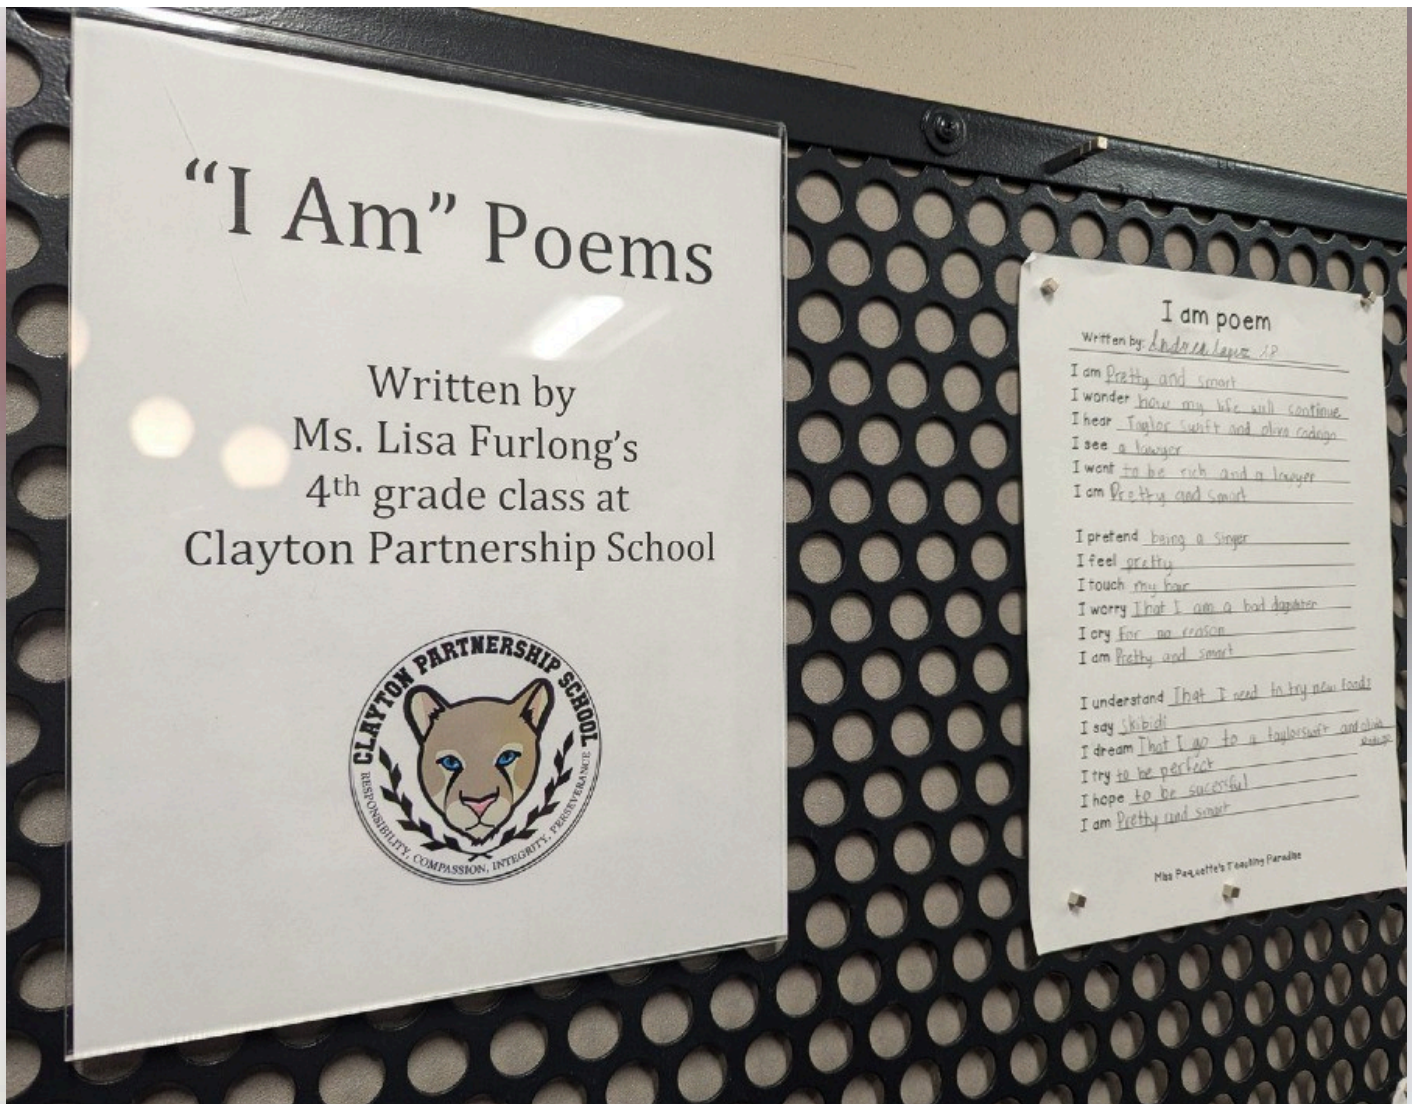 “I Am” Poems
Written by
Ms. Lisa Furlong’s
4th grade class at
Clayton Partnership School
CLAYTON PARTNERSHIP SCHOOL
RESPONSIBILITY, COMPASSION, INTEGRITY, PERSEVERANCE
I am poem
Written by: Andrea Lopez
I am Pretty and smart
I wonder how my life will continue
I hear Taylor Swift and
I see a lawyer
I want to be rich and a lawyer
I am Pretty and smart
I pretend being a singer
I feel pretty
I touch my hair
I worry That I am a bad
I cry For no reason
I am Pretty and smart
I understand That I need to try new foods
I say skibidi
I dream That I go to a taylorswift and
I try to be perfect
I hope to be
I am Pretty and smart
Miss Paquette's Teaching Paradise